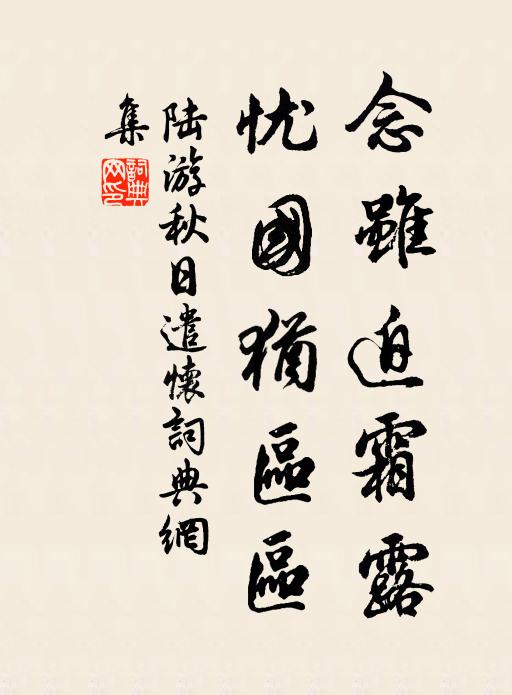 念雖迫霜露
忧國猶區區
陆游秋日遣懷詞典網
集
詞典網印